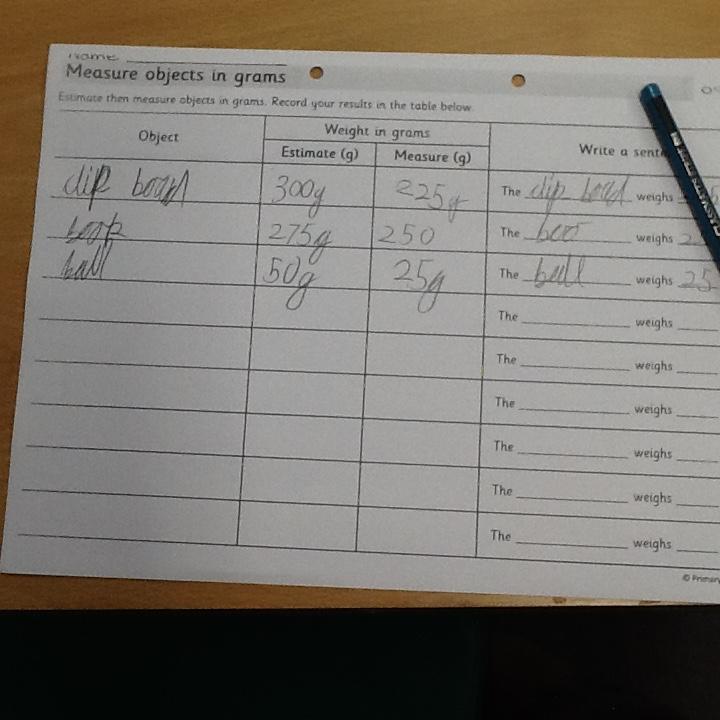 Name
Measure objects in grams
Estimate then measure objects in grams. Record your results in the table below.
Object
Weight in grams
Estimate (g)
Measure (g)
Write a sent
clip board 300g 225g The clip bord weighs
275g 250 The weighs
ball 50g 25g The ball weighs 25
The weighs
The weighs
The weighs
The weighs
The weighs
The weighs
© Primary